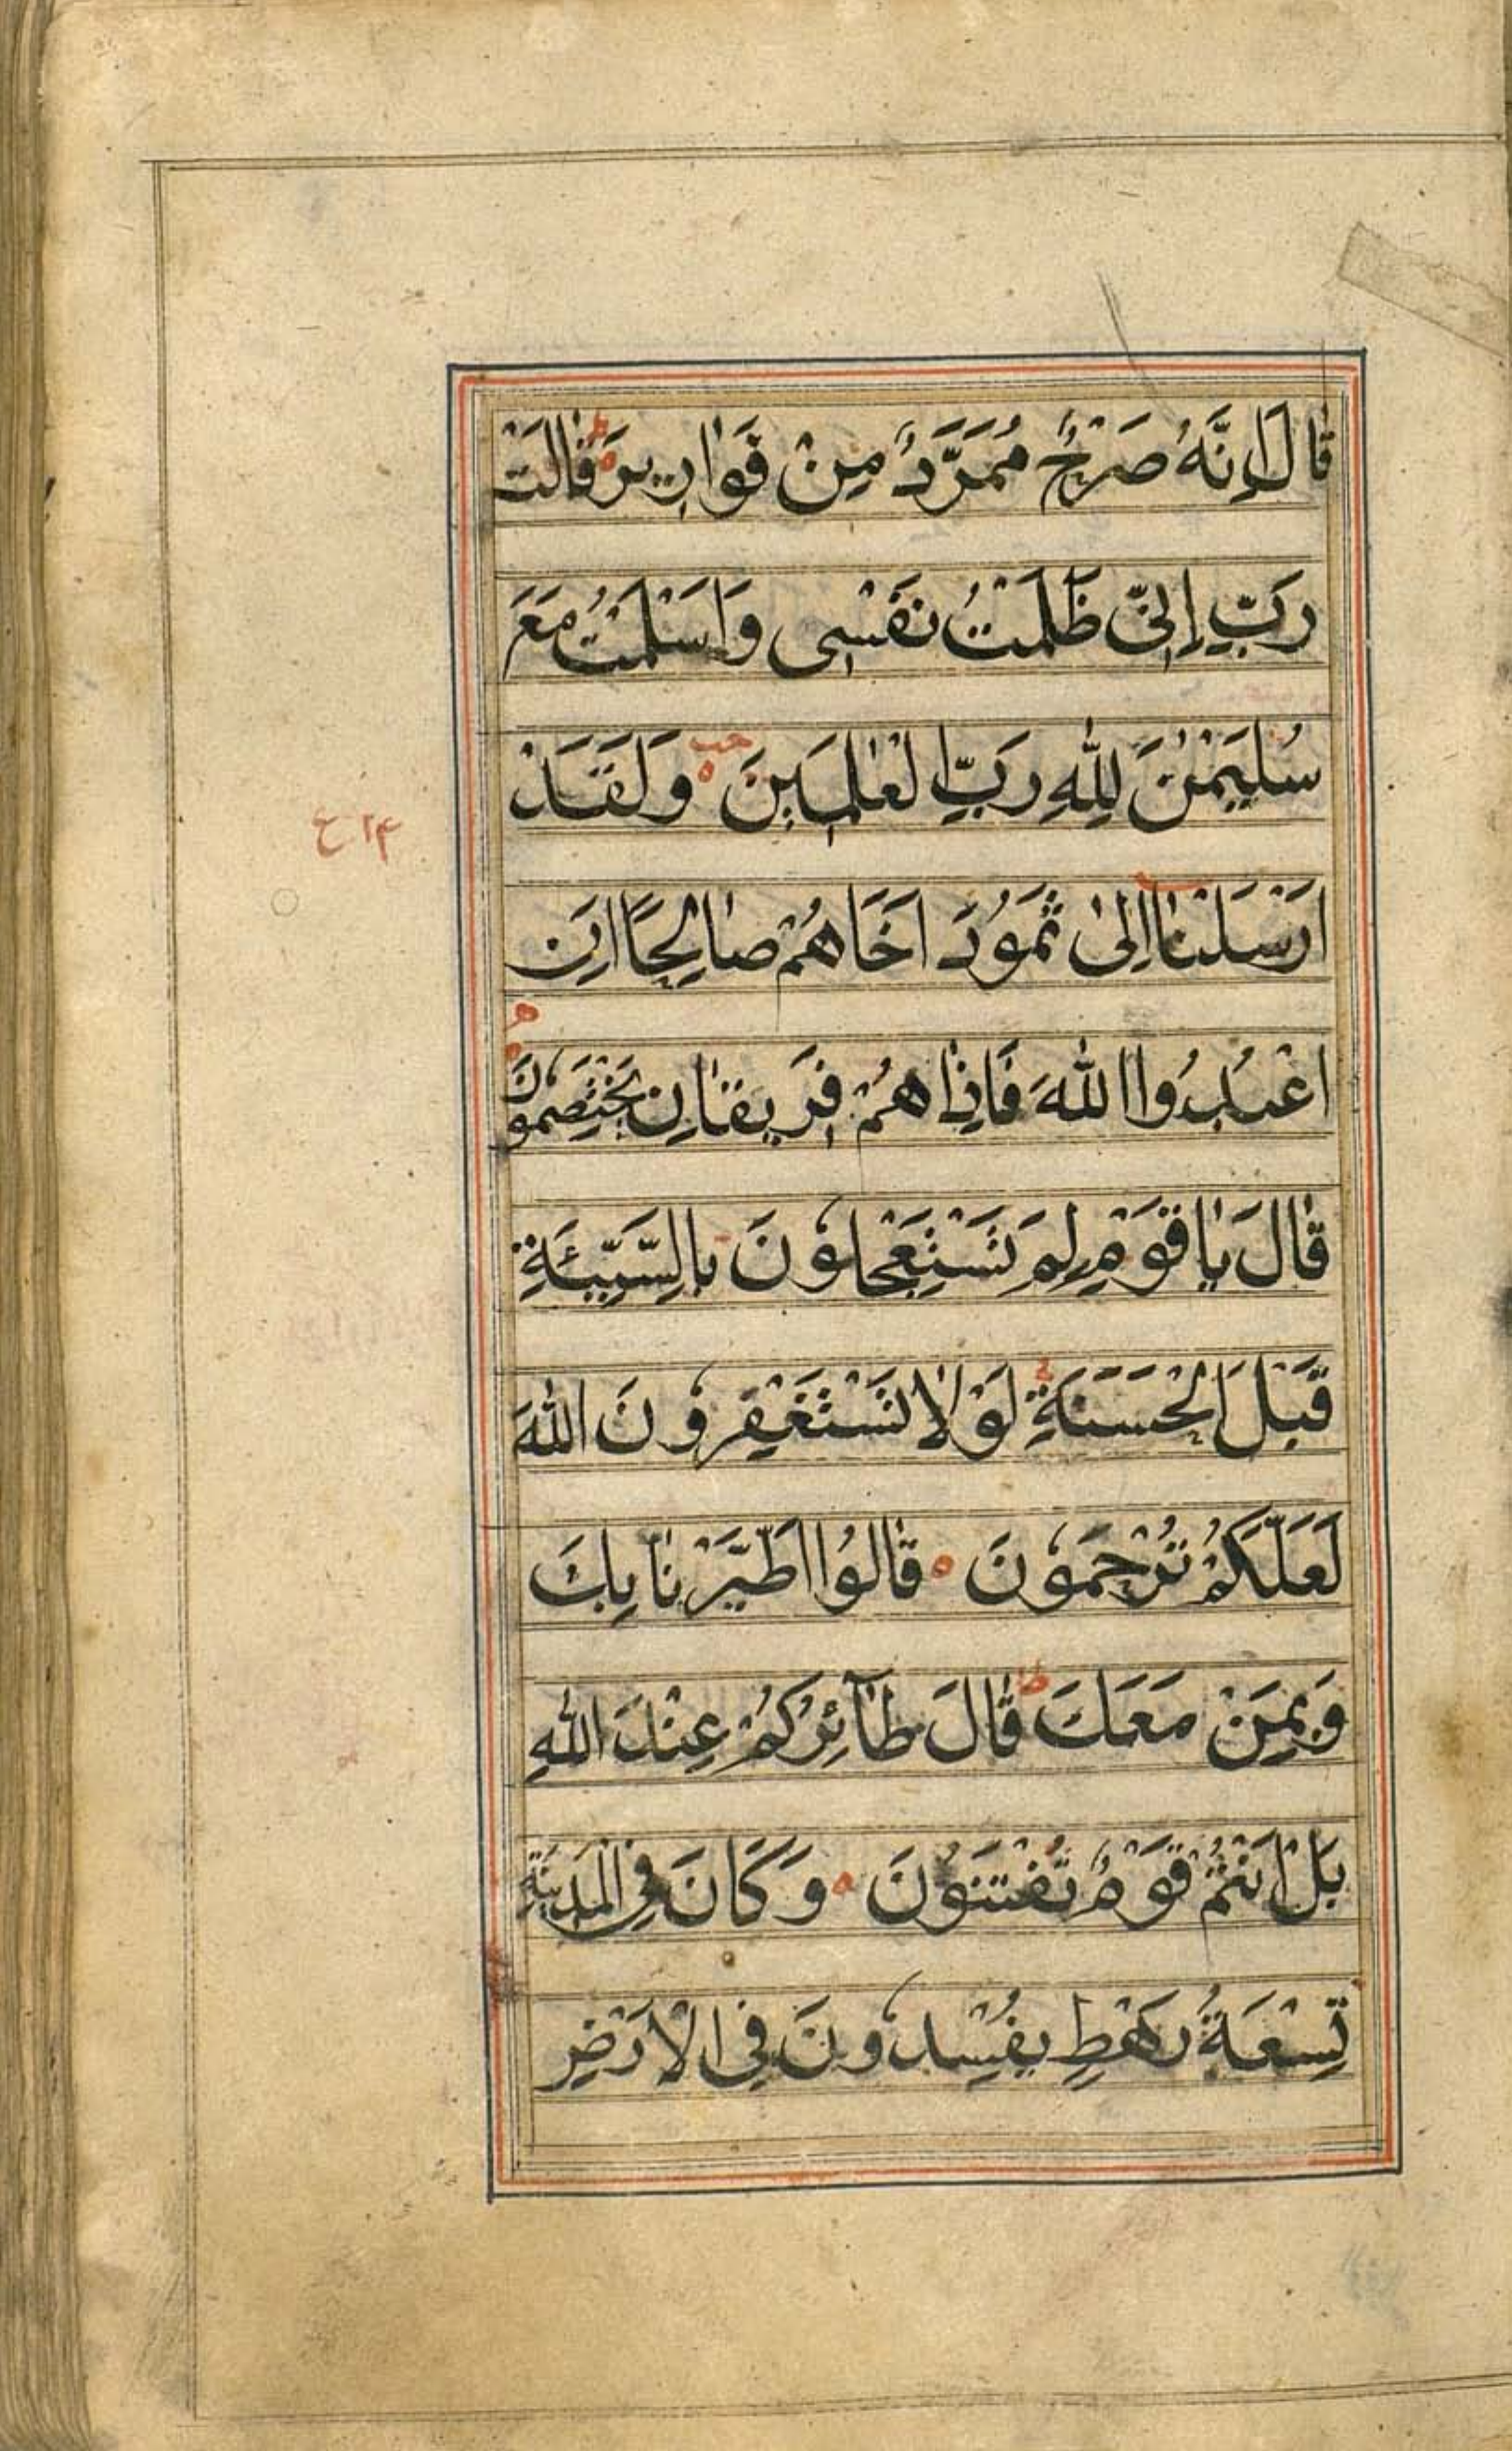 قَالَ اِنَّهُ صَرْحٌ مُمَرَّدٌ مِنْ قَوَارِيرَ ط قَالَتْ
رَبِّ اِنِّى ظَلَمْتُ نَفْسِى وَاَسْلَمْتُ مَعَ
سُلَيْمٰنَ لِلّٰهِ رَبِّ الْعٰلَمِينَ وَلَقَدْ
اَرْسَلْنَا اِلىٰ ثَمُوْدَ اَخَاهُمْ صَالِحًا اَنِ
اعْبُدُوا اللّٰهَ فَاِذَا هُمْ فَرِيقَانِ يَخْتَصِمُوْنَ
قَالَ يَا قَوْمِ لِمَ تَسْتَعْجِلُوْنَ بِالسَّيِّئَةِ
قَبْلَ الْحَسَنَةِ لَوْلَا تَسْتَغْفِرُوْنَ اللّٰهَ
لَعَلَّكُمْ تُرْحَمُوْنَ قَالُوا اطَّيَّرْنَا بِكَ
وَبِمَنْ مَعَكَ ط قَالَ طَآئِرُكُمْ عِنْدَ اللّٰهِ
بَلْ اَنْتُمْ قَوْمٌ تُفْتَنُوْنَ وَكَانَ فِى الْمَدِيْنَةِ
تِسْعَةُ رَهْطٍ يُفْسِدُوْنَ فِى الْاَرْضِ